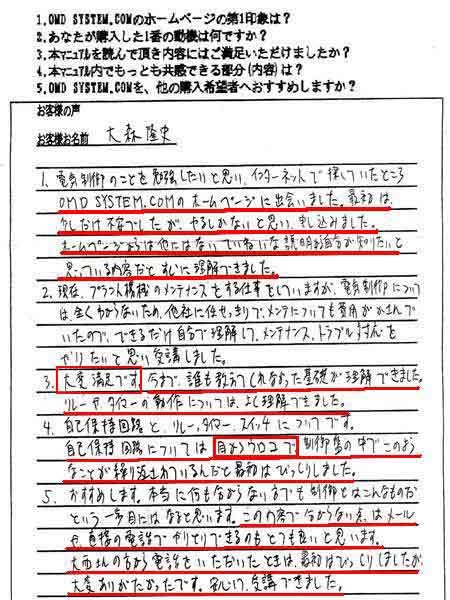 1.OMD SYSTEM.COMのホームページの第1印象は?
2.あなたが購入した1番の動機は何ですか?
3.本マニュアルを読んで頂き内容にはご満足いただけましたか?
4.本マニュアル内でもっとも共感できる部分(内容)は?
5.OMD SYSTEM.COMを、他の購入希望者へおすすめしますか?
お客様の声
お客様お名前 大森隆史
1. 電気制御のことを勉強したいと思い、インターネットで探していたところ
OMD SYSTEM.COMのホームページに出会いました。最初は
少しだけ不安でしたが、やるしかないと思い、申し込みました。
ホームページからは他にはないていねいな説明が自分が知りたいと
思っている内容だとすぐに理解できました。
2. 現在、プラント機械のメンテナンスをする仕事をしていますが、電気制御について
は全くわからないため、他社に任せっきりで、メンテについても費用がかさんで
いたので、できるだけ自分で理解して、メンテナンス、トラブル対応を
やりたいと思い受講しました。
3. 大変満足です。今まで、誰も教えてくれなかった基礎が理解できました。
リレーや、タイマーの動作については、よく理解できました。
4. 自己保持回路と、リレー、タイマー、スイッチについてです。
自己保持回路については目からウロコで制御盤の中でこのよう
なことが繰り返されているんだと最初はびっくりしました。
5. おすすめします。本当に何も分からない方でも制御とはこんなものだ
という一歩目にはなると思います。この内容で分からない点はメール
や、直接の電話でやりとりできるのもとても良いと思います。
大西さんの方から電話をいただいたときは、最初はびっくりしましたが
大変ありがたかったです。安心して、受講できました。